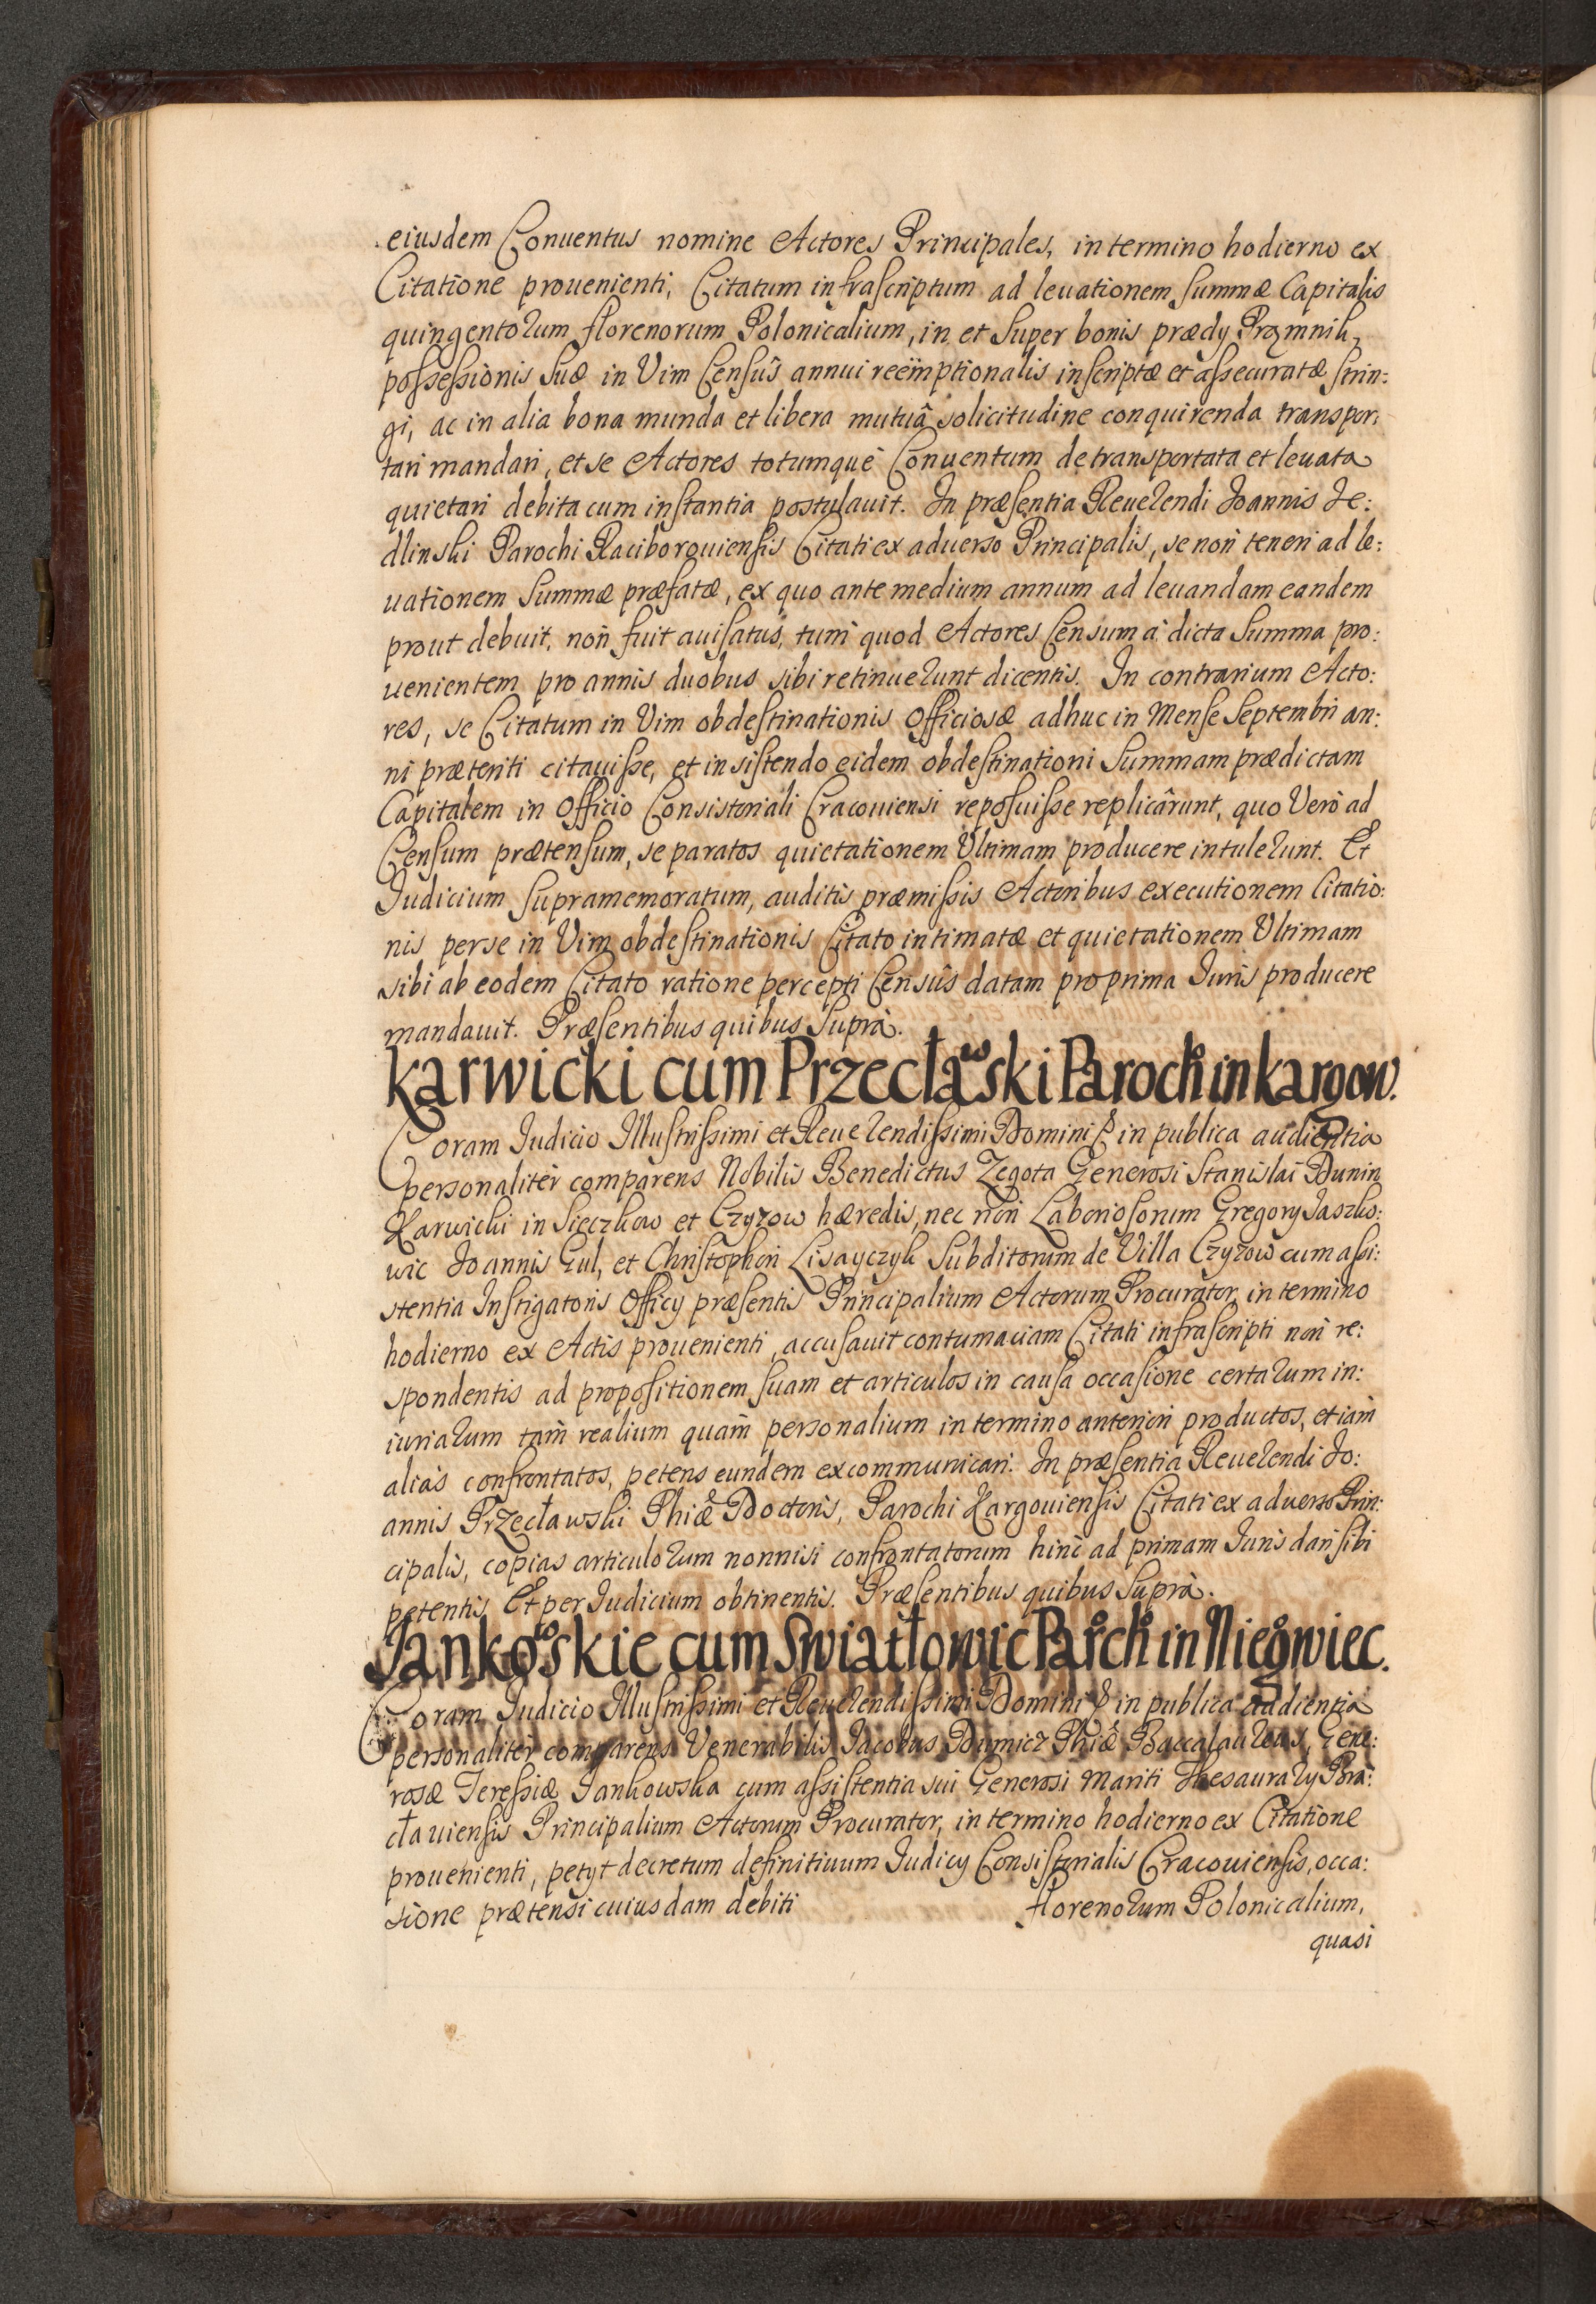 eiusdem Conuentus nomine Actores Principales, in termino hodierno ex
Citatione prouenienti, Citatum infrascriptum ad leuationem Summæ Capitalis
quingentorum florenorum Polonicalium, in et super bonis prædij
possessionis suæ in Vim Censûs annui reëmptionalis inscriptæ et assecuratæ strin:
gi, ac in alia bona munda et libera mutuâ solicitudine conquirenda transpor:
tari mandari, et se Actores totumque Conuentum de transportata et leuata
quietari debita cum instantia postulauit. In præsentia Reuerendi Joannis Je:
dlinski Parochi Raciborouiensis Citati ex aduerso Principalis, se non teneri ad le:
uationem Summæ præfatæ, ex quo ante medium annum ad leuandam eandem
prout debuit, non fuit auisatus, tum quod Actores Censum à dicta Summa pro:
uenientem pro annis duobus sibi retinuerunt dicentis. In contrarium Acto:
res, se Citatum in Vim obdestinationis Officiosæ adhuc in Mense Septembri an:
ni præteriti citauisse, et insistendo eidem obdestinationi Summam prædictam
Capitalem in Officio Consistoriali Cracouiensi reposuisse replicârunt, quo Verò ad
Censum prætensum, se paratos quietationem Ultimam producere intulerunt. Et
Judicium supramemoratum, auditis præmissis Actoribus executionem Citatio:
nis per se in Vim obdestinationis Citato intimatæ et quietationem Ultimam
sibi ab eodem Citato ratione percepti Censûs datam pro prima Juris producere
mandauit. Præsentibus quibus Suprà.
Karwicki cum Przecławski Paroch in Kargow.
Coram Judicio Illustrissimi et Reuerendissimi Domini & in publica audientia
personaliter comparens Nobilis Benedictus Zegota Generosi Stanislai Dunin
Karwicki in Sieczkow et Czyzow hæredis, nec non Laboriosorum Gregorij Jaszko:
wic Joannis Gul, et Christophori Lisayczyk Subditorum de Villa Czyzow cum assi:
stentia Instigatoris Officij præsentis Principalium Actorum Procurator, in termino
hodierno ex Actis prouenienti, accusauit contumaciam Citati infrascripti non re:
spondentis ad propositionem suam et articulos in causa occasione certarum in:
iuriarum tam realium quam personalium in termino anteriori productos, etiam
alias confrontatos, petens eundem excommunicari. In præsentia Reuerendi Jo:
annis Przecławski Phiæ Doctoris, Parochi Kargouiensis Citati ex aduerso Prin:
cipalis, copias articulorum nonnisi confrontatorum hinc ad primam Juris dari sibi
petentis Et per Judicium obtinentis. Præsentibus quibus Suprà.
Jankowskie cum Swiatłowic Paroch in Niegowiec.
Coram Judicio Illustrissimi et Reuerendissimi Domini & in publica audientia
personaliter comparens Venerabilis Jacobus Dumicz Phiæ Baccalaureus, Gene:
rosæ Teressiæ Jankowska cum assistentia sui Generosi Mariti Thesaurarij Bra:
cłauiensis Principalium Actorum Procurator, in termino hodierno ex Citatione
prouenienti, petyt decretum definitiuum Judicij Consistorialis Cracouiensis, occa:
sione prætensi cuiusdam debiti florenorum Polonicalium,
quasi